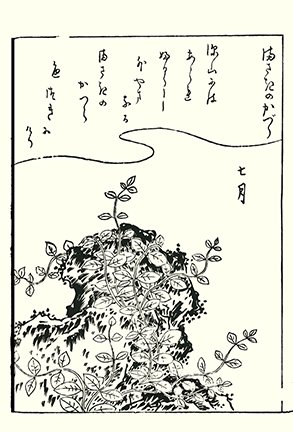 まさきのかづら
七月
深山には
あられ
ふるらし
とやま
なる
まさきの
かつら
色つきに
けり